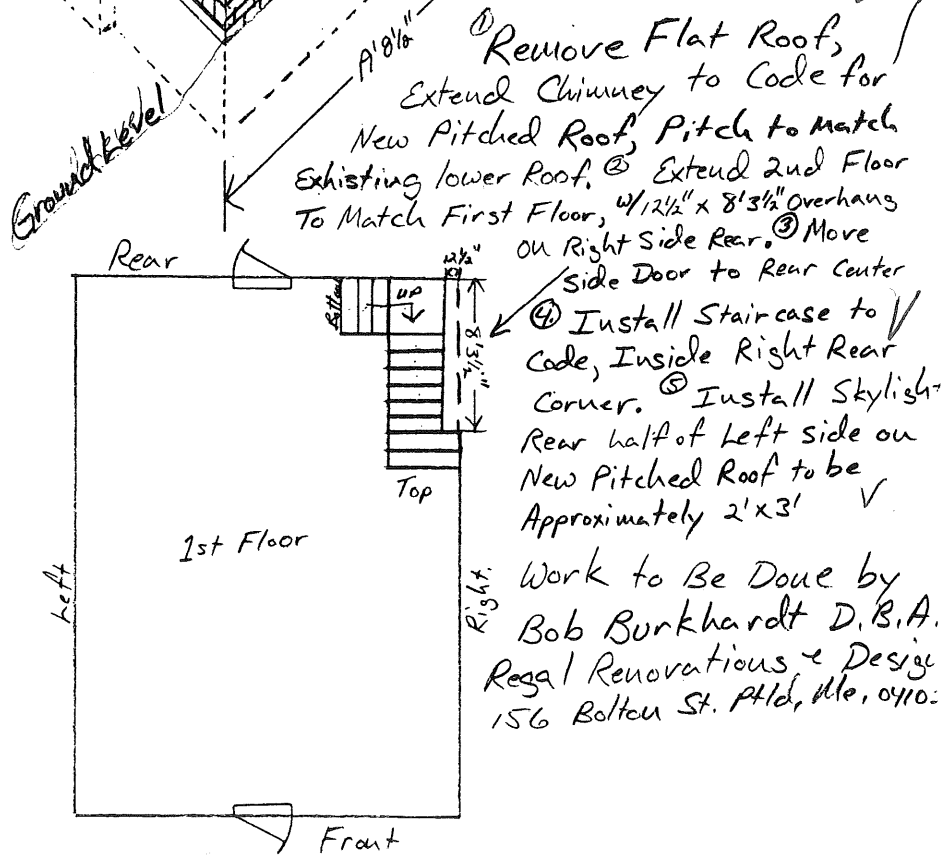 ① Remove Flat Roof,
Extend Chimney to Code for
New Pitched Roof, Pitch to Match
Exhisting lower Roof. ② Extend 2nd Floor
To Match First Floor, w/ 12½" x 8'3½" Overhang
on Right Side Rear. ③ Move
Side Door to Rear Center
④. Install Staircase to
Code, Inside Right Rear
Corner. ⑤ Install Skyligh
Rear half of Left side on
New Pitched Roof to be
Approximately 2'x3'
Work to Be Done by
Bob Burkhardt D.B.A.
Regal Renovations & Desig
156 Bolton St. Ptld, Me, 0410
8½"
Ground Level
Rear
12½"
Bottom
UP
8'3½"
Top
1st Floor
Left
Right
Front